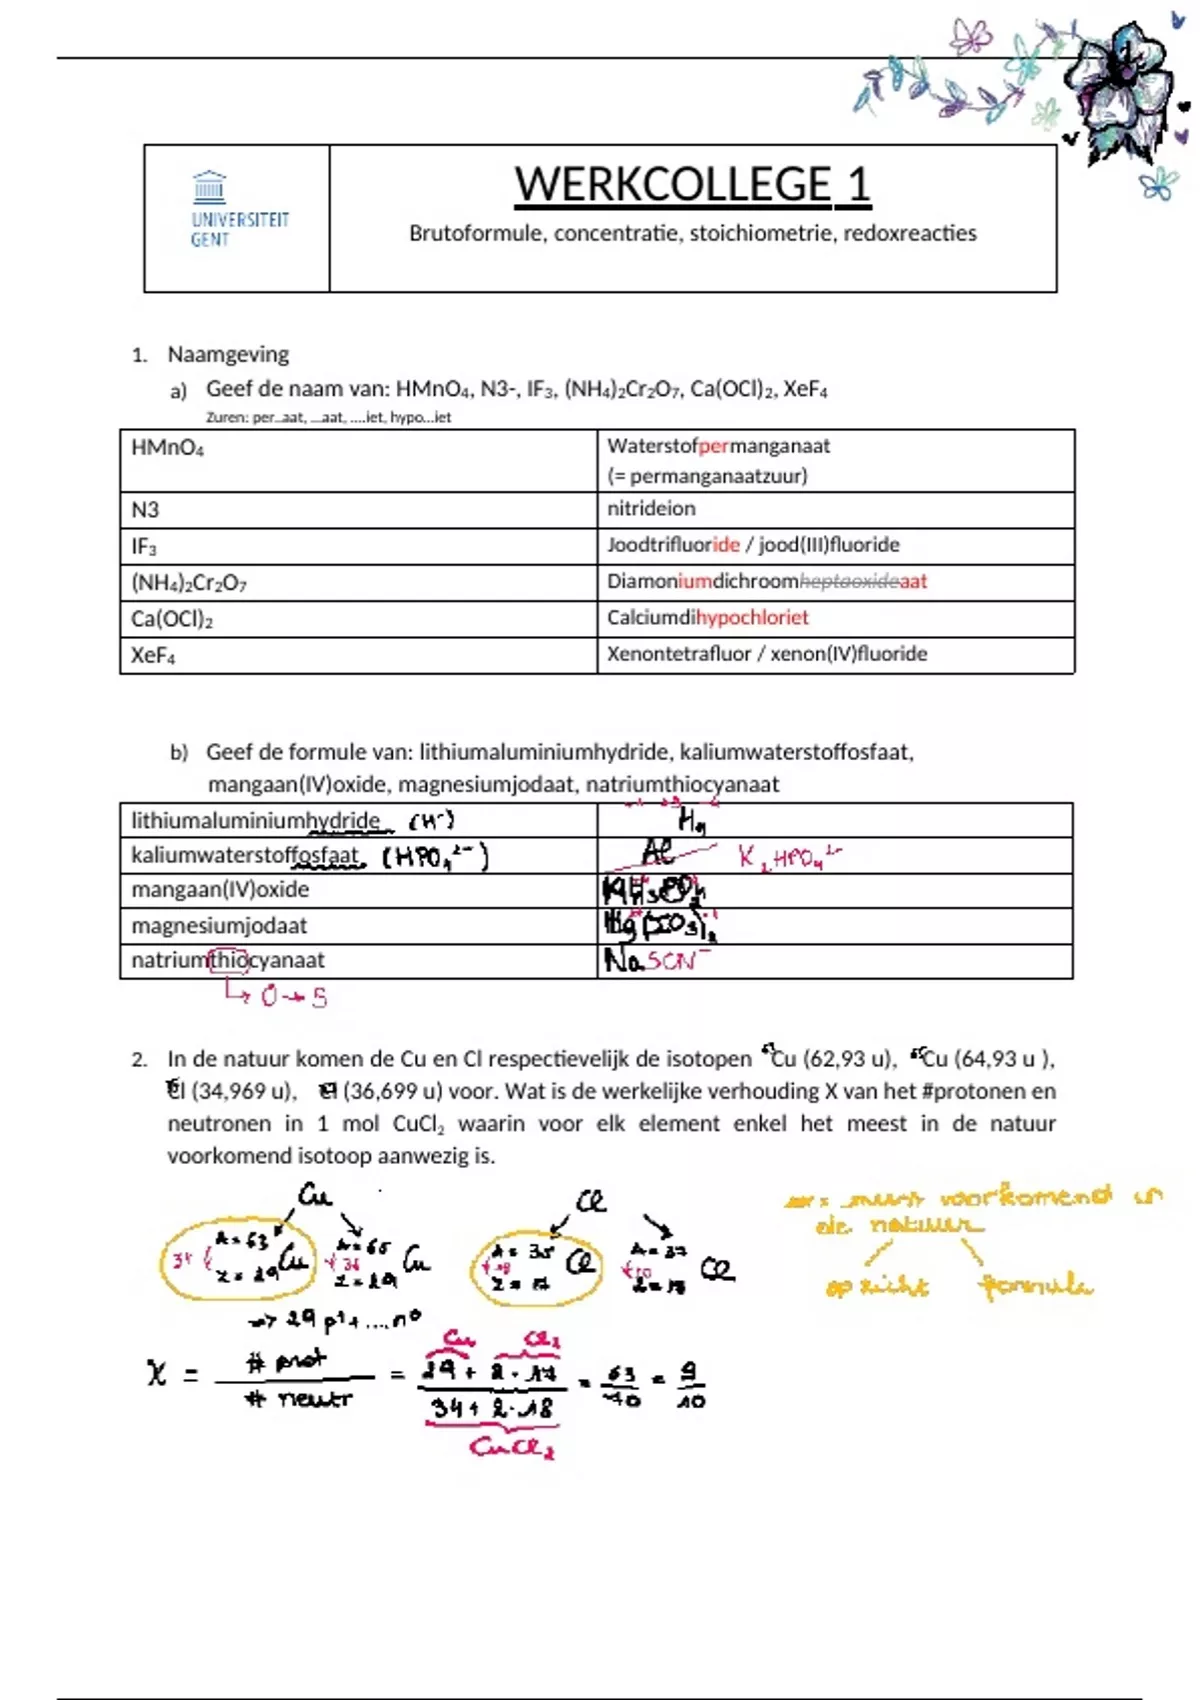 UNIVERSITEIT
GENT
WERKCOLLEGE 1
Brutoformule, concentratie, stoichiometrie, redoxreacties
1. Naamgeving
a) Geef de naam van: HMnO₄, N3-, IF₃, (NH₄)₂Cr₂O₇, Ca(OCl)₂, XeF₄
Zuren: per..aat, ...aat, ....iet, hypo...iet
HMnO₄ Waterstofpermanganaat
(= permanganaatzuur)
N3 nitrideion
IF₃ Joodtrifluoride / jood(III)fluoride
(NH₄)₂Cr₂O₇ Diamoniumdichroomheptaoxideaat
Ca(OCl)₂ Calciumdihypochloriet
XeF₄ Xenontetrafluor / xenon(IV)fluoride
b) Geef de formule van: lithiumaluminiumhydride, kaliumwaterstoffosfaat,
mangaan(IV)oxide, magnesiumjodaat, natriumthiocyanaat
lithiumaluminiumhydride (H⁻)
kaliumwaterstoffosfaat (HPO₄²⁻) K₂HPO₄²⁻
mangaan(IV)oxide
magnesiumjodaat
natriumthiocyanaat Na SCN⁻
↳ O → S
2. In de natuur komen de Cu en Cl respectievelijk de isotopen ⁶³Cu (62,93 u), ⁶⁵Cu (64,93 u ),
Cl (34,969 u), Cl (36,699 u) voor. Wat is de werkelijke verhouding X van het #protonen en
neutronen in 1 mol CuCl₂ waarin voor elk element enkel het meest in de natuur
voorkomend isotoop aanwezig is.
Cu Cl
meest voorkomend in
de natuur
A = 63 Cu A = 65 Cu A = 35 Cl A = 37 Cl
34 36 18 20
Z = 29 Z = 29 Z = 17
op zicht formule
=> 29 p⁺ + ....n⁰
Cu Cl₂
X = # prot / # neutr = 29 + 2 · 17 / 34 + 2 · 18 = 63 / 70 = 9 / 10
CuCl₂